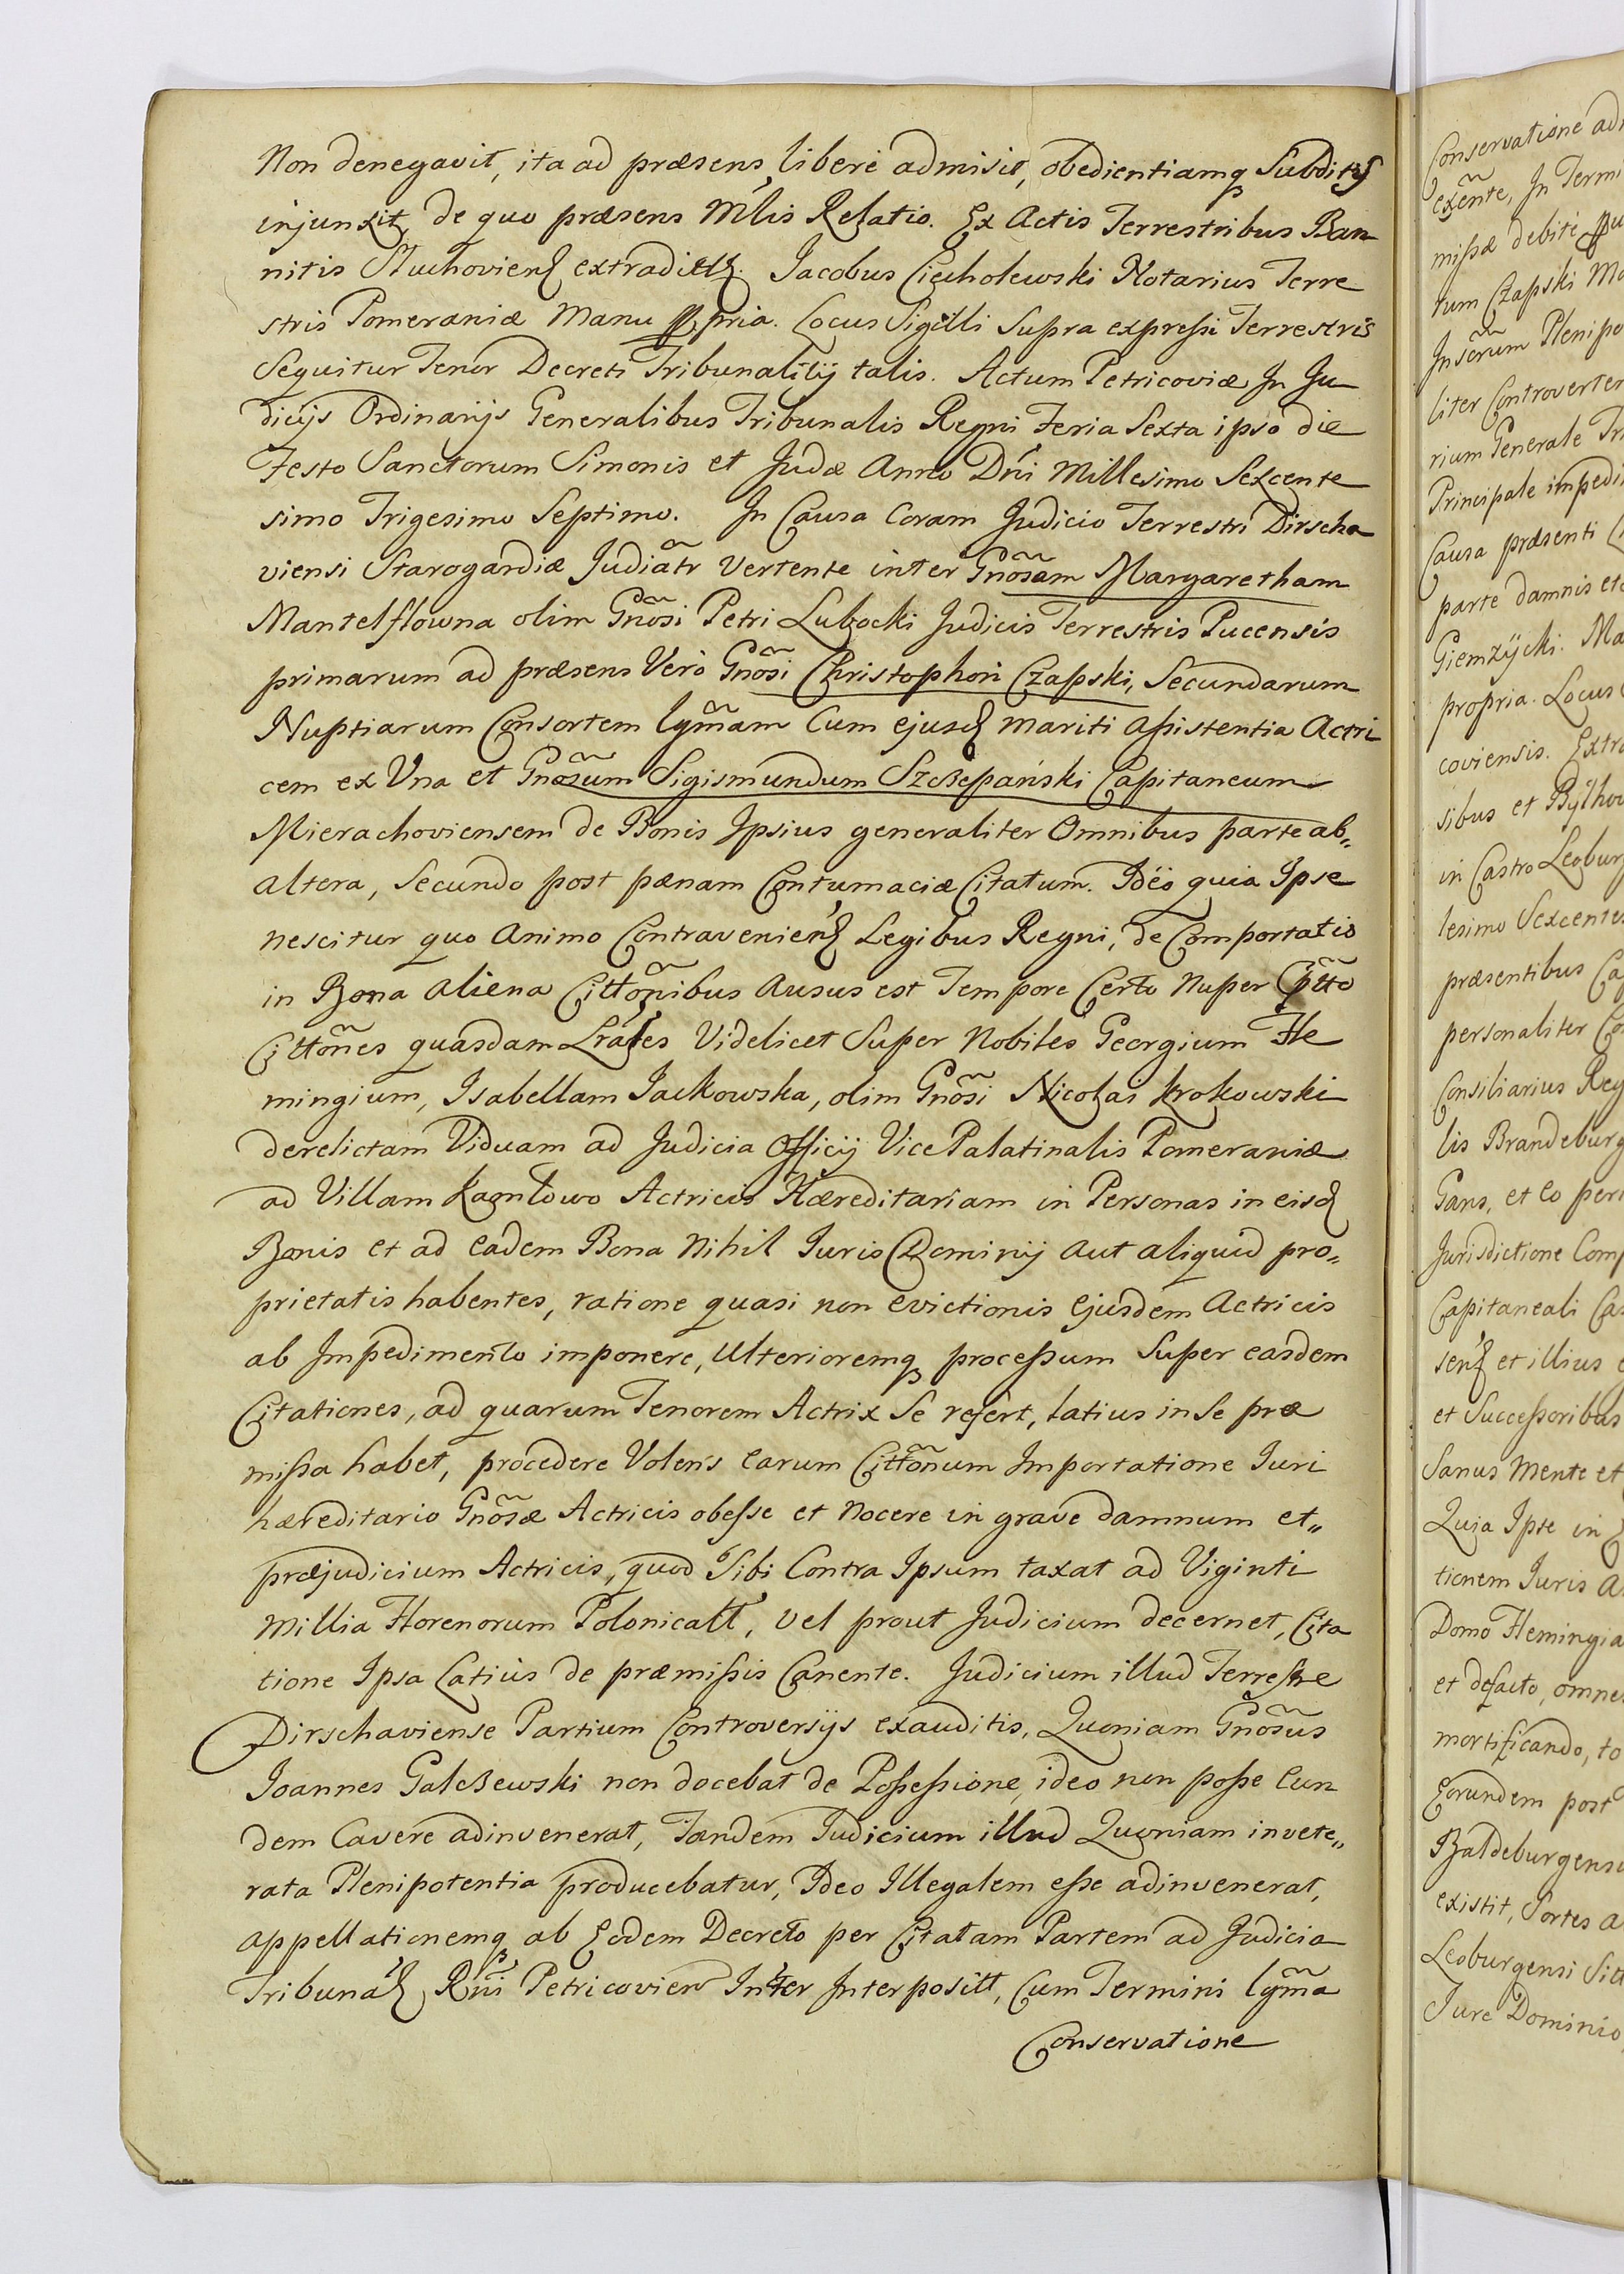 Non denegavit, ita ad præsens liberè admisit, obedientiamq Subditis
injunxit, de quo præsens Mlis Relatio. Ex Actis Terrestribus Ban
nitis Stuchovien extradittz. Jacobus Ciecholewski Notarius Terre
stris Pomeraniæ Manu ppria. Locus Sigilli Supra expreßi Terrestris
Sequitur Tenor Decreti Tribunalitij talis. Actum Petricoviæ In Ju
dicijs Ordinarijs Generalibus Tribunalis Regni Feria Sexta ipso die
Festo Sanctorum Simonis et Judæ Anno Dni Millesimo Sexcente
simo Trigesimo Septimo. In Causa Coram Judicio Terrestri Dirscha
viensi Starogardiæ Judiãtr Vertente inter Gnõsam Margaretham
Mantelflowna olim Gnõsi Petri Lubocki Judicis Terrestris Pucensis
primarum ad præsens Verò Gnõsi Christophori Czapski, Secundarum
Nuptiarum Consortem lgtmam Cum ejusd mariti aßistentia Actri
cem ex Una et Gnõsum Sigismundum Szcßepański Capitaneum
Mierachoviensem de Bonis Ipsius generaliter Omnibus parte ab„
altera, Secundo post pænam Contumaciæ Citatum. Ideo quia Ipse
nescitur quo Animo Contravenienź Legibus Regni, de Comportatis
in Bona aliena Cittõnibus Ausus est Tempore Certo Nuper
Cittõnes quasdam Videlicet Super Nobiles Georgium Fle
mingium, Isabellam Jackowska, olim Gnõsi Nicolai Krokowski
derelictam Viduam ad Judicia Officij Vice Palatinalis Pomeraniæ
ad Villam Actricis Hæreditariam in Personas in eisd
Bonis et ad eadem Bona Nihil Juris Dominij aut aliquid pro„
prietatis habentes, ratione quasi non evictionis ejusdem Actricis
ab Impedimento imponere, Ulterioremq proceßum Super easdem
Citationes, ad quarum Tenorem Actrix Se refert, latius in Se præ
mißa habet, procedere Volens earum Cittõnum Importatione Juri
hæreditario Gnõsæ Actricis obeße et Nocere in grave damnum et„
præjudicium Actricis, quod Sibi Contra Ipsum taxat ad Viginti
Millia Florenorum Polonicall, vel prout Judicium decernet, Cita
tione Ipsa Latius de præmißis Canente. Judicium illud Terrestre
Dirschaviense Partium Controversijs exauditis, Quoniam Gnõsus
Joannes Galcßewski non docebat de Poßeßione, ideo non poße Eun
dem Cavere adinvenerat, Tandem Judicium illud Quoniam invete„
rata Plenipotentia producebatur, Ideo Illegalem eße adinvenerat,
appellationemq ab Eodem Decreto per Citatam Partem ad Judicia
Tribunal Rñi Petricovien Inter Interpositt, Cum Termini lgtma
Conservatione
Conservatione ad
exẽnte, In Termi
mißæ debitè
tum Czapski Ma
Plenipo
liter Controverter
rium Generale Tri
Principale impedi
Causa præsenti
parte damnis et
Giemzÿcki. Ma
propria. Locus
coviensis. Extra
sibus et Bÿthov
in Castro Leobur
lesimo Sexcentes
præsentibus Ca
personaliter Co
Consiliarius Reg
lis Brandeburg
Gans, et eo per
Jurisdictione Comp
Capitaneali Cas
et illius
et Succeßoribus
Sanus Mente et
Quia Ipse in
tionem Juris a
Domo Flemingia
et defacto, omnes
mortificando, to
Eorundem post
Baldeburgens
existit, Sortes a
Leoburgensi Sitt
Jure Dominio